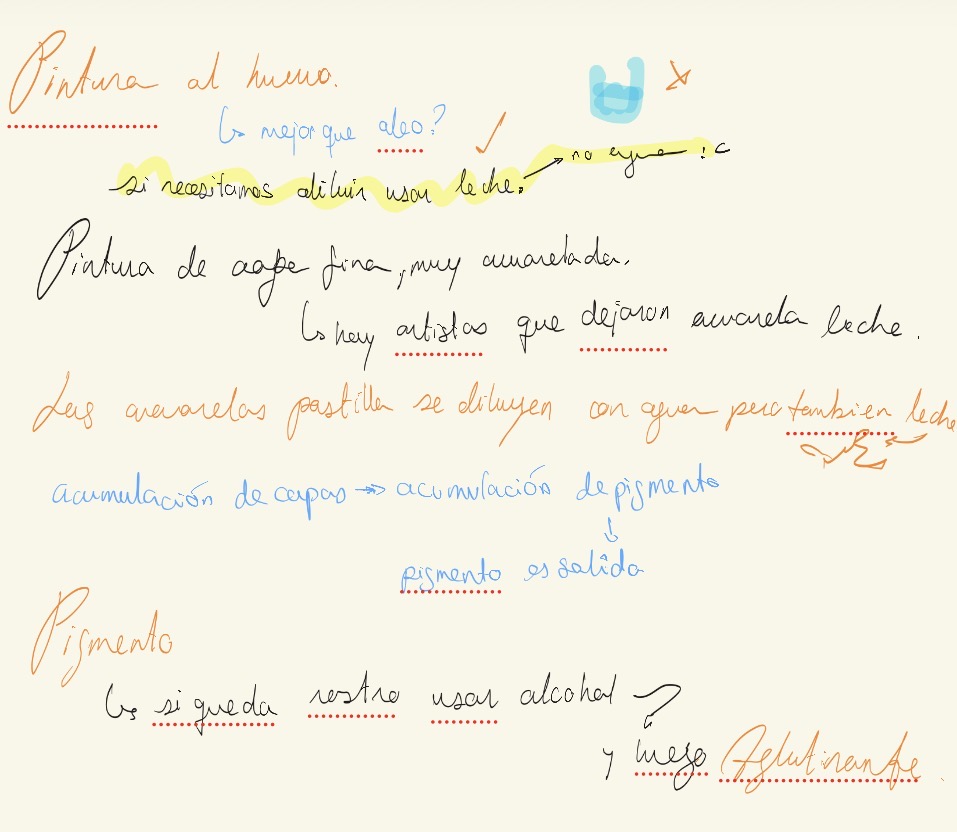 Pintura al huevo.
↳ mejor que oleo?
si necesitamos diluir usar leche. → no agua :c
Pintura de capa fina, muy acuarelada.
↳ hay artistas que dejaron acuarela leche.
Las acuarelas pastilla se diluyen con agua pero tambien leche
acumulación de capas → acumulación de pigmento
↓
pigmento es
Pigmento
↳ si queda rastro usar alcohol
y luego Aglutinante.